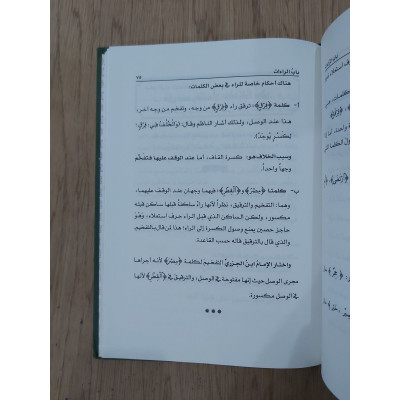 باب الراءات ٧٨
هناك أحكام خاصة للراء في بعض الكلمات:
أ- كلمة ﴿فِرْقٍ﴾، ترقق راء ﴿فِرْقٍ﴾ من وجه، وتفخم من وجه آخر،
هذا عند الوصل، ولذلك أشار الناظم وقال: (وَالْخُلْفُ فِي فِرْقٍ
لِكَسْرٍ يُوجَدُ)
وسبب الخلاف هو: كسرة القاف، أما عند الوقف عليها فتفخّم
وجهاً واحداً.
ب- كلمتا ﴿مِصْرَ﴾ و﴿الْقِطْرِ﴾، فيهما وجهان عند الوقف عليهما،
وهما: التفخيم والترقيق، نظراً لأنها راءٌ ساكنةٌ قبلها ساكن قبله
مكسور، ولكن الساكن الذي قبل الراء حرف استعلاء، وهو
حاجز حصين يمنع وصول الكسرة إلى الراء؛ هذا لمن قال بالتفخيم
والذي قال بالترقيق قاله حسب القاعدة.
واختار الإمام ابن الجزري التفخيم لكلمة ﴿مِصْرَ﴾ لأنه أجراها
مجرى الوصل حيث إنها مفتوحة في الوصل، والترقيق في ﴿الْقِطْرِ﴾ لأنها
في الوصل مكسورة.